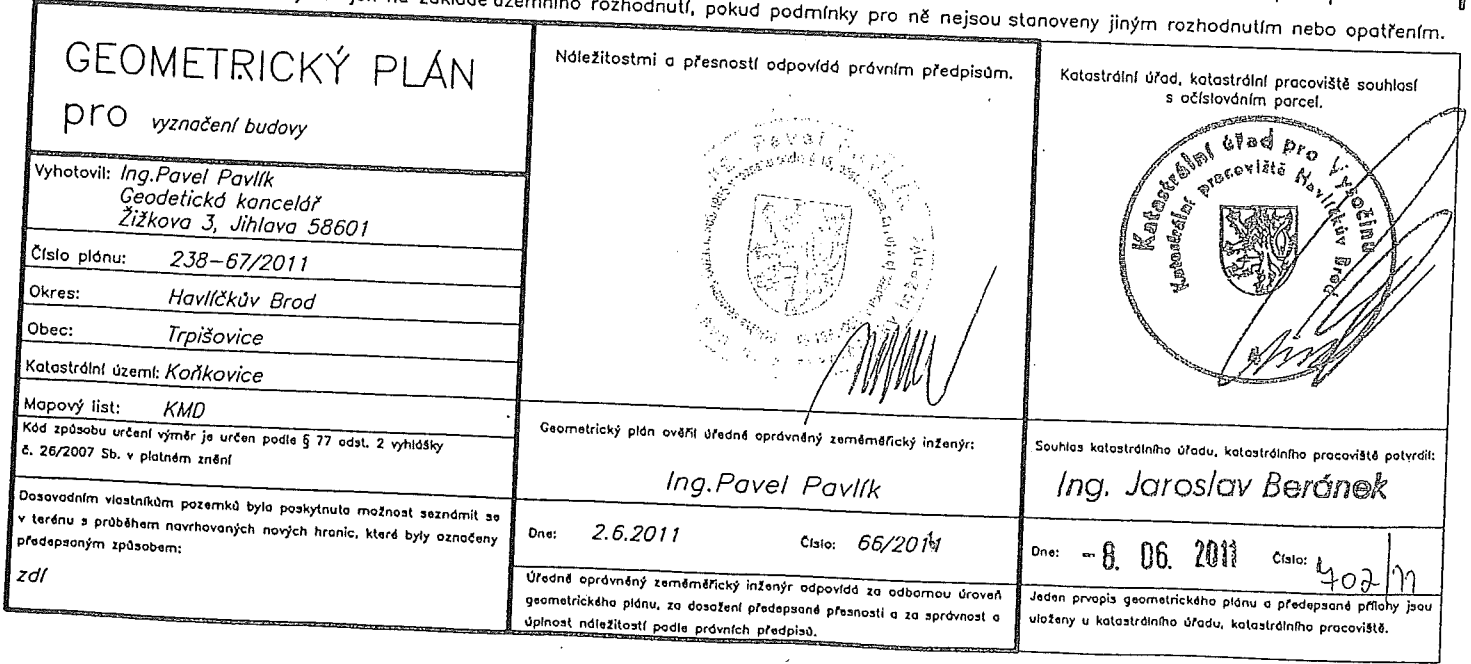 rozhodnutí, pokud podmínky pro ně nejsou stanoveny jiným rozhodnutím nebo opatřením.
GEOMETRICKÝ PLÁN
pro vyznačení budovy
Vyhotovil: Ing.Pavel Pavlík
Geodetická kancelář
Žižkova 3, Jihlava 58601
Číslo plánu: 238-67/2011
Okres: Havlíčkův Brod
Obec: Trpišovice
Katastrální území: Koňkovice
Mapový list: KMD
Kód způsobu určení výměr je určen podle § 77 odst. 2 vyhlášky
č. 26/2007 Sb. v platném znění
Dosavadním vlastníkům pozemků byla poskytnuta možnost seznámit se
v terénu s průběhem navrhovaných nových hranic, které byly označeny
předepsaným způsobem:
zdí
Náležitostmi a přesností odpovídá právním předpisům.
Geometrický plán ověřil úředně oprávněný zeměměřický inženýr:
Ing.Pavel Pavlík
Dne: 2.6.2011 Číslo: 66/2011
Úředně oprávněný zeměměřický inženýr odpovídá za odbornou úroveň
geometrického plánu, za dosažení předepsané přesnosti a za správnost a
úplnost náležitostí podle právních předpisů.
Katastrální úřad, katastrální pracoviště souhlasí
s očíslováním parcel.
Katastrální úřad pro Vysočinu
Katastrální pracoviště Havlíčkův Brod
Souhlas katastrálního úřadu, katastrálního pracoviště potvrdil:
Ing. Jaroslav Beránek
Dne: - 8. 06. 2011 Číslo: 402/11
Jeden prvopis geometrického plánu a předepsané přílohy jsou
uloženy u katastrálního úřadu, katastrálního pracoviště.